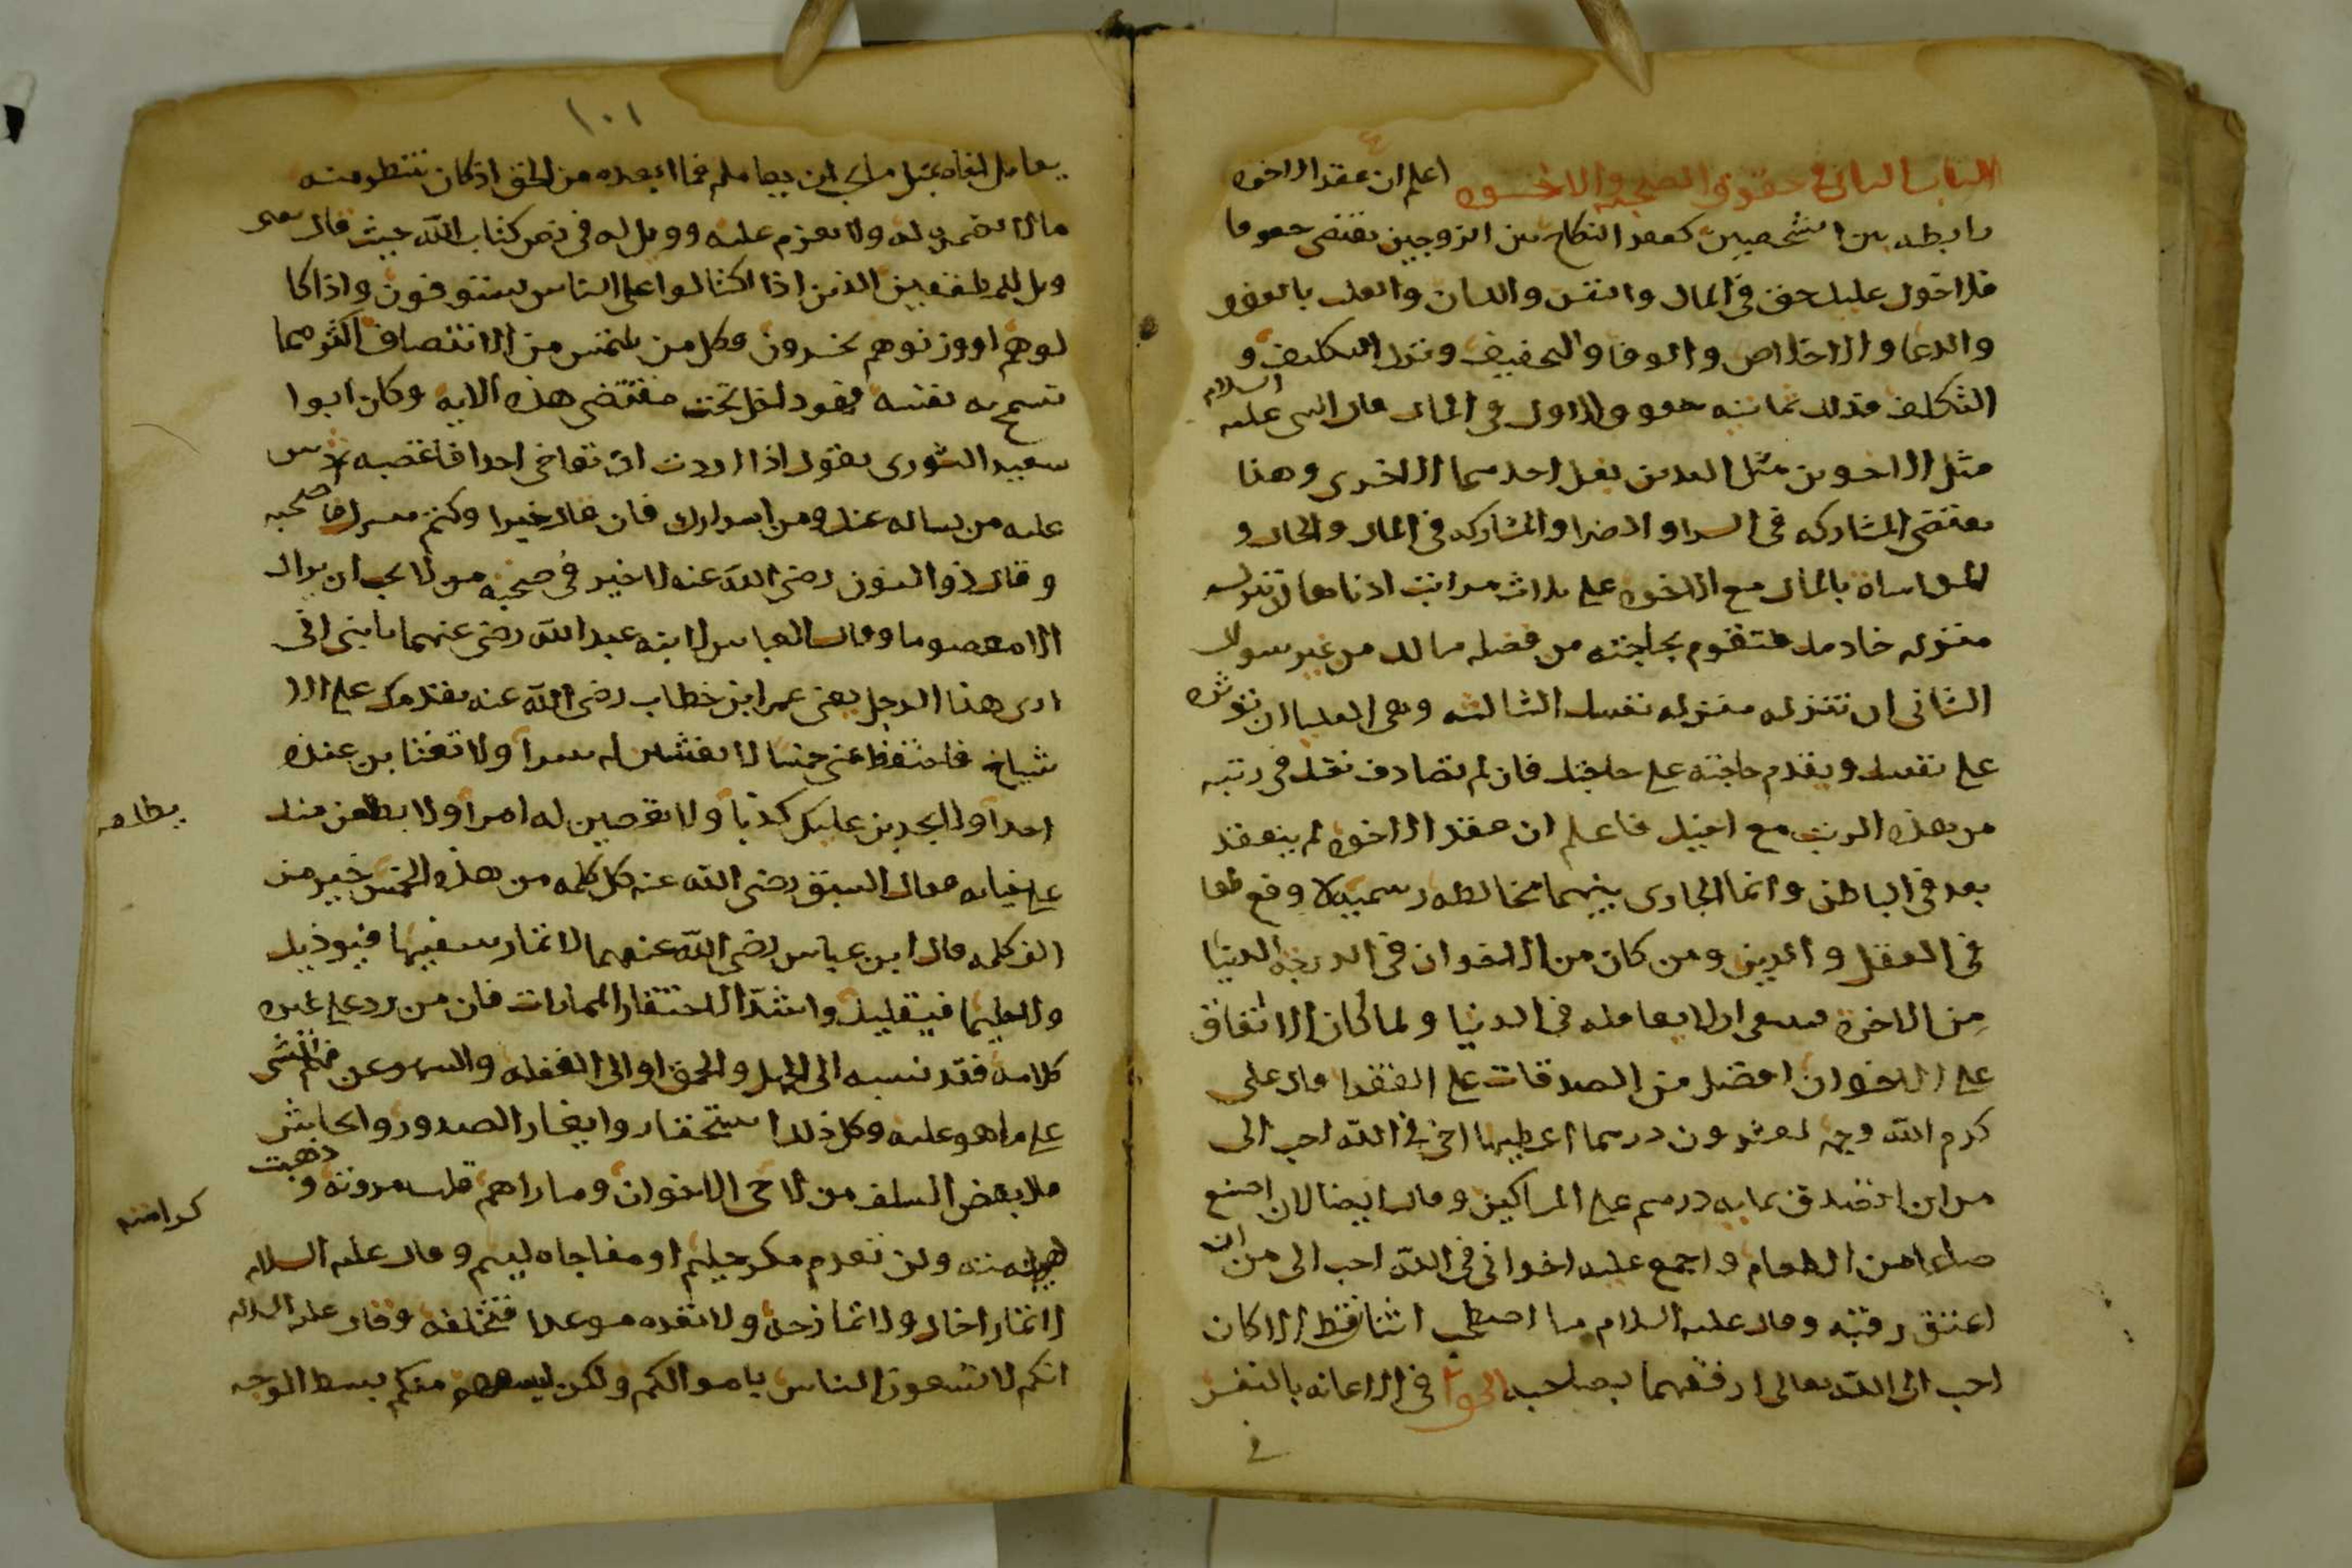 الباب الثاني في حقوق الصحبه والاخوه اعلم ان عقد الاخوه
رابطه بين الشخصين كعقد النكاح بين الزوجين يقتضي حقوقا
فلاخوك عليك حق في المال والنفس واللسان والقلب بالعفو
والدعا والاخلاص والوفا والتخفيف وترك التكليف و
التكلف فذلك ثمانيه حقوق الاول في المال قال النبي عليه السلام
مثل الاخوين مثل اليدين يغسل احدهما الاخرى وهذا
يقتضي المشاركه في السرا والضرا والمشاركه في المال والحال و
المواساة بالمال مع الاخوه على ثلاث مراتب ادناها ان تنزله
منزله خادمك فتقوم بحاجته من فضله مالك من غير سوال
الثاني ان تنزله منزله نفسك الثالثه وهي العليا ان توثره
على نفسك ويقدم حاجته على حاجتك فان لم تصادف نفسك في رتبه
من هذه الرتب مع اخيك فاعلم ان عقد الاخوه لم ينعقد
بعد في الباطن وانما الجاري بينهما مخالطه رسميه لا وقع لها
في العقل والدين ومن كان من الاخوان في الدرجه الدنيا
من الاخرة فينبغي ان لا يعامله في الدنيا ولما كان الانفاق
على الاخوان افضل من الصدقات على الفقرا قال علي
كرم الله وجهه لعشرون درهما اعطيها اخي في الله احب الى
من ان اتصدق بمايه درهم على المساكين وقال ايضا لان اصنع
صاعا من الطعام واجمع عليه اخواني في الله احب الى من ان
اعتق رقبه وقال عليه السلام ما اصطحب اثنا قط الا كان
احب الى الله تعالى ارفقهما بصاحبه في الاعانه بالنفس
في
١٠١
يعامل اخاه بمثل ما يحب ان يعامله فما ابعده من الحق اذ كان تنتظر منه
مالا تضمره له ولا تعزم عليه وويل له في نص كتاب الله حيث قال تعالى
ويل للمطففين الذين اذا اكتالوا على الناس يستوفون واذا كا
لوهم او وزنوهم يخسرون وكل من يلتمس من الانتصاف اكثر مما
تسمح به نفسه فهو داخل تحت مقتضى هذه الايه وكان ابوا
سعيد الثوري يقول اذا اردت ان تواخي احدا فاغضبه ثم دس
عليه من يساله عنك ومن اسرارك فان قال خيرا وكتم سرك فاصحبه
وقال ذو النون رضي الله عنه لا خير في صحبه من لا يحب ان يراك
الا معصوما وقال العباس لابنه عبد الله رضي عنهما يا بني اني
ارى هذا الرجل يعني عمر ابن خطاب رضي الله عنه يقدمك على الا
شياخ فاحتفظ عني خمسا لا تفشين له سرا ولا تغتابن عنده
احدا ولا يجدبن عليك كذبا ولا تعصين له امرا ولا يطلعن منك يطلعن
على خيانه فقال السبق رضي الله عنه كل كلمه من هذه الخمس خير من
الف كلمه قال ابن عباس رضي الله عنهما لا تمار سفيها فيوذيك
ولا حليما فيقليك واشد الاحتقار الممارات فان من رد على غيره
كلامه فقد نسبه الى الجهل والحمق او الى الغفله والسهو عن فهم الشي
على ما هو عليه وكل ذلك استحقار وايغار الصدور وايحاش
قال بعض السلف من لاحى الاخوان وماراهم قلت مروته وذهبت
كرامته كرامته ولن تعدم مكر حليم او مفاجاه ليم وقال عليه السلام
لا تمار اخاك ولا تمازحه ولا تعده موعدا فتخلفه وقال عليه السلام
انكم لا تسعون الناس باموالكم ولكن ليسعهم منكم بسط الوجه